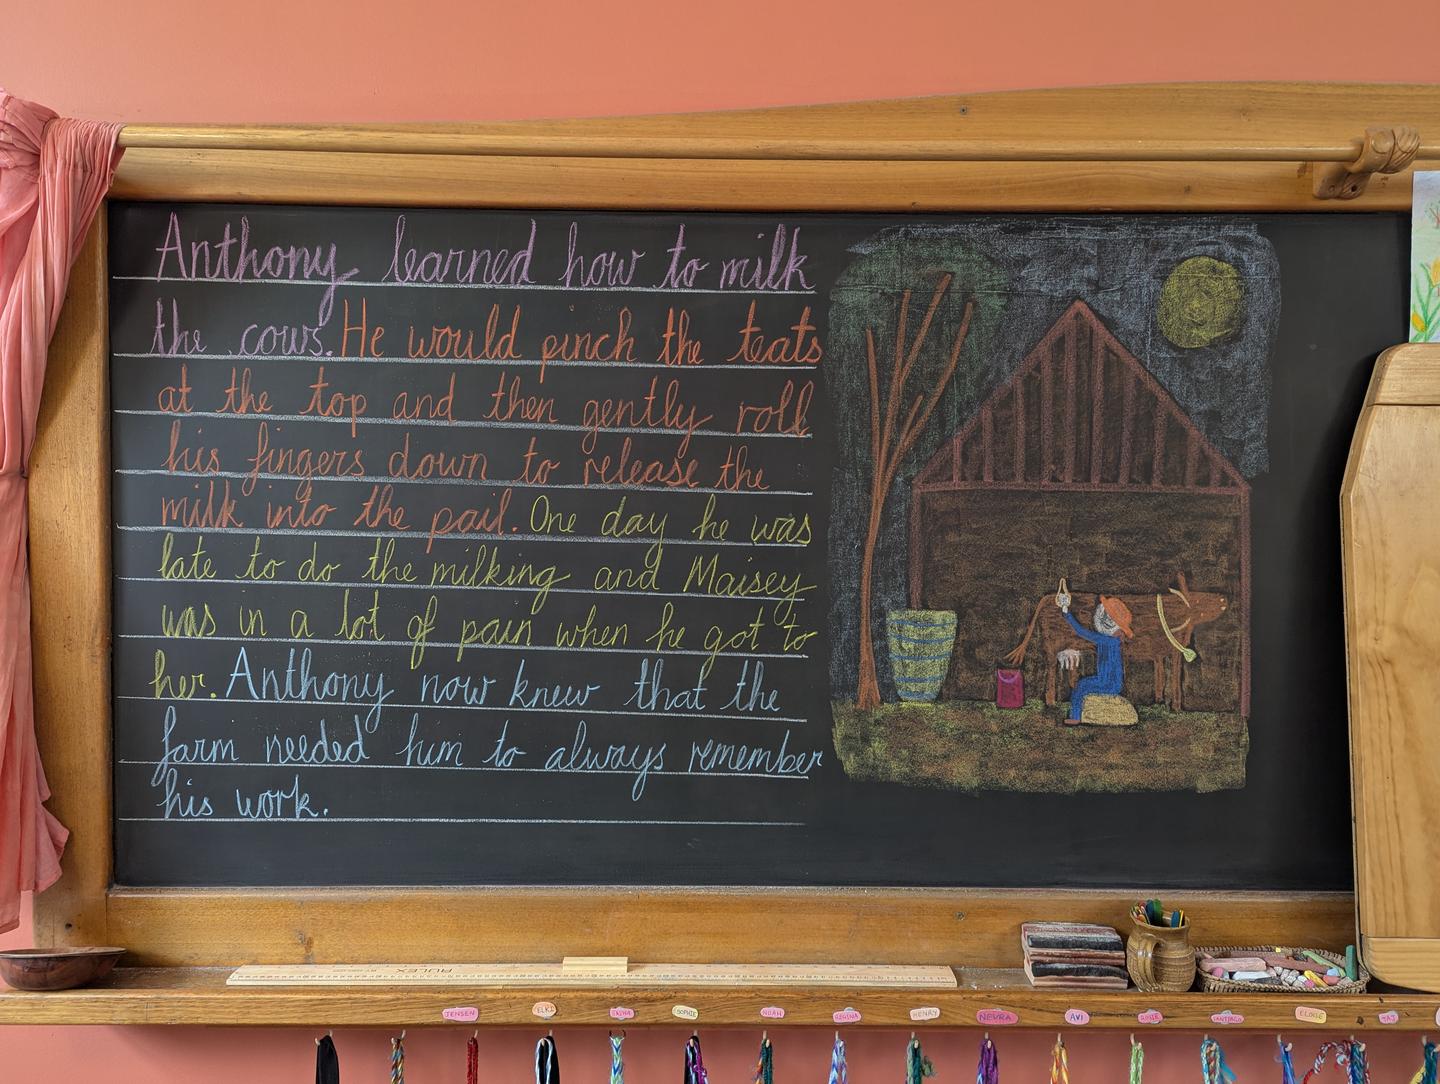 Anthony learned how to milk
the cows. He would pinch the teats
at the top and then gently roll
his fingers down to release the
milk into the pail. One day he was
late to do the milking and Maisey
was in a lot of pain when he got to
her. Anthony now knew that the
farm needed him to always remember
his work.
RULEX
JENSEN
ELKI
SOPHIE
NOAH
REGINA
HENRY
NEVRA
AVI
SANTIAGO
ELOISE
TAJ